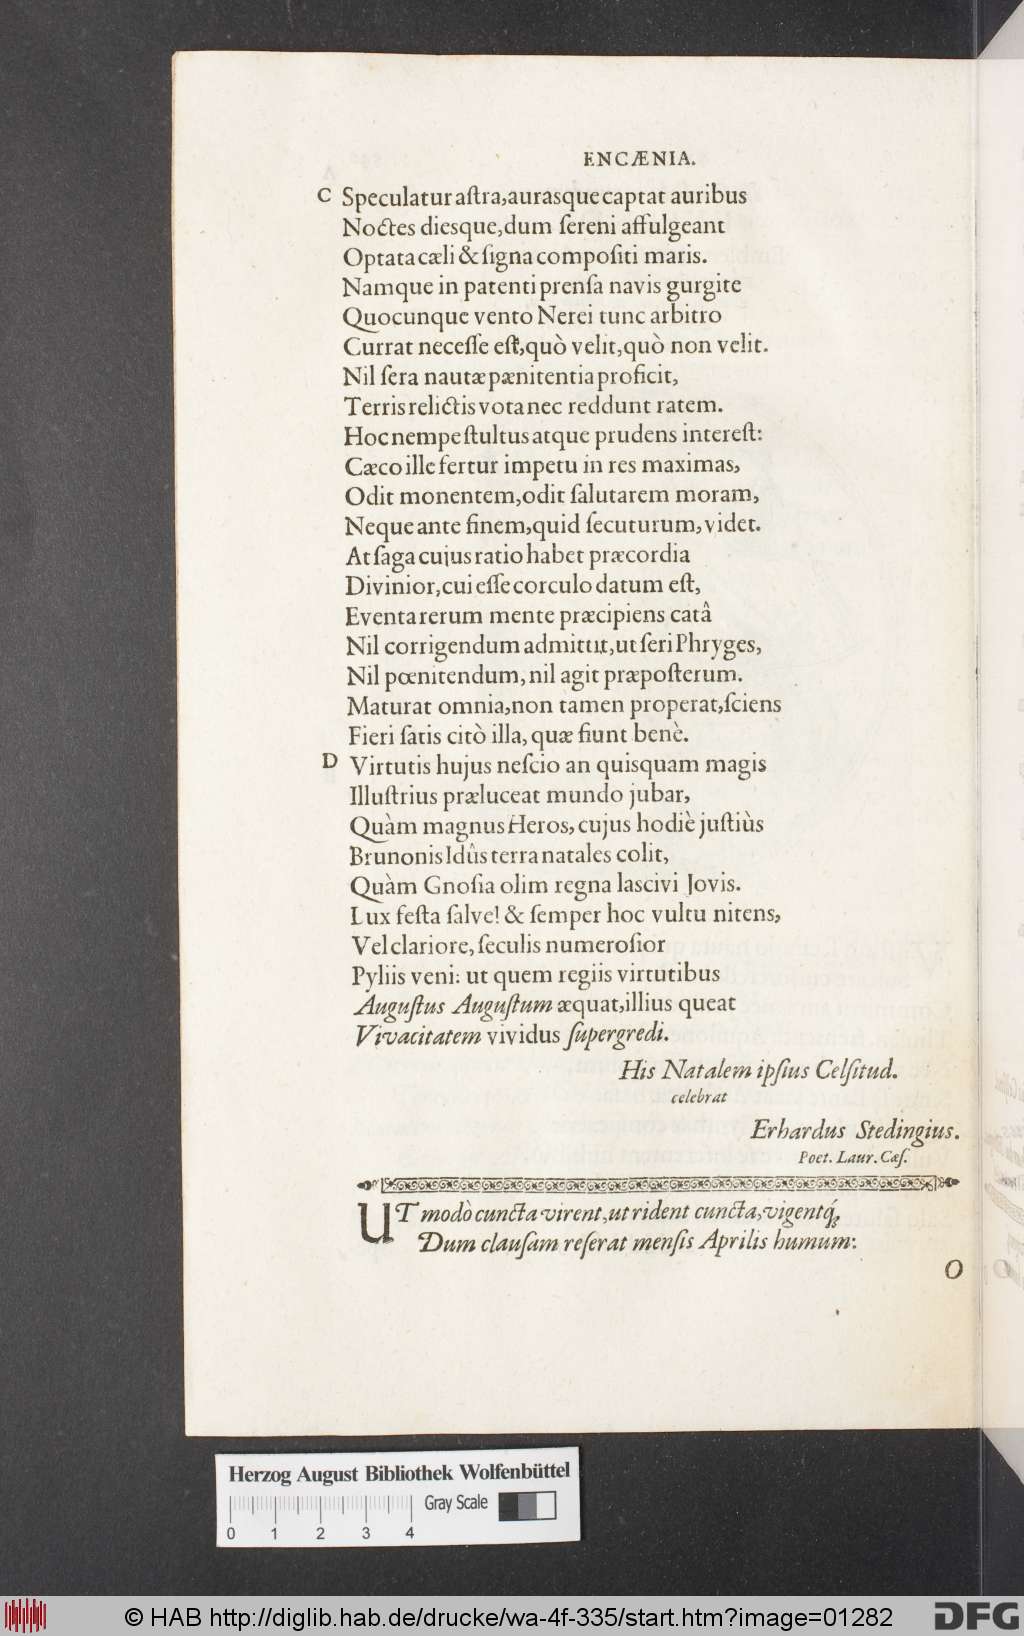 ENCÆNIA.
C Speculatur aſtra,aurasque captat auribus
Noctes diesque,dum ſereni affulgeant
Optata cæli & ſigna compoſiti maris.
Namque in patenti prenſa navis gurgite
Quocunque vento Nerei tunc arbitro
Currat neceſſe eſt,quò velit,quò non velit.
Nil ſera nautæ pænitentia proficit,
Terris relictis vota nec reddunt ratem.
Hoc nempe ſtultus atque prudens intereſt:
Cæco ille fertur impetu in res maximas,
Odit monentem,odit ſalutarem moram,
Neque ante finem,quid ſecuturum,videt.
At ſaga cujus ratio habet præcordia
Divinior,cui eſſe corculo datum eſt,
Eventa rerum mente præcipiens catâ
Nil corrigendum admittit,ut ſeri Phryges,
Nil pœnitendum,nil agit præpoſterum.
Maturat omnia,non tamen properat,ſciens
Fieri ſatis citò illa, quæ fiunt benè.
D Virtutis hujus neſcio an quisquam magis
Illuſtrius præluceat mundo jubar,
Quàm magnus Heros, cujus hodiè juſtiùs
Brunonis Idûs terra natales colit,
Quàm Gnoſia olim regna lascivi Jovis.
Lux feſta ſalve! & ſemper hoc vultu nitens,
Vel clariore, ſeculis numeroſior
Pyliis veni: ut quem regiis virtutibus
Auguſtus Auguſtum æquat,illius queat
Vivacitatem vividus ſupergredi.
His Natalem ipſius Celſitud.
celebrat
Erhardus Stedingius.
Poet. Laur. Cæſ.
UT modò cuncta virent,ut rident cuncta,vigentq́;
Dum clauſam reſerat menſis Aprilis humum:
O
Herzog August Bibliothek Wolfenbüttel
Gray Scale
0 1 2 3 4
© HAB http://diglib.hab.de/drucke/wa-4f-335/start.htm?image=01282
DFG